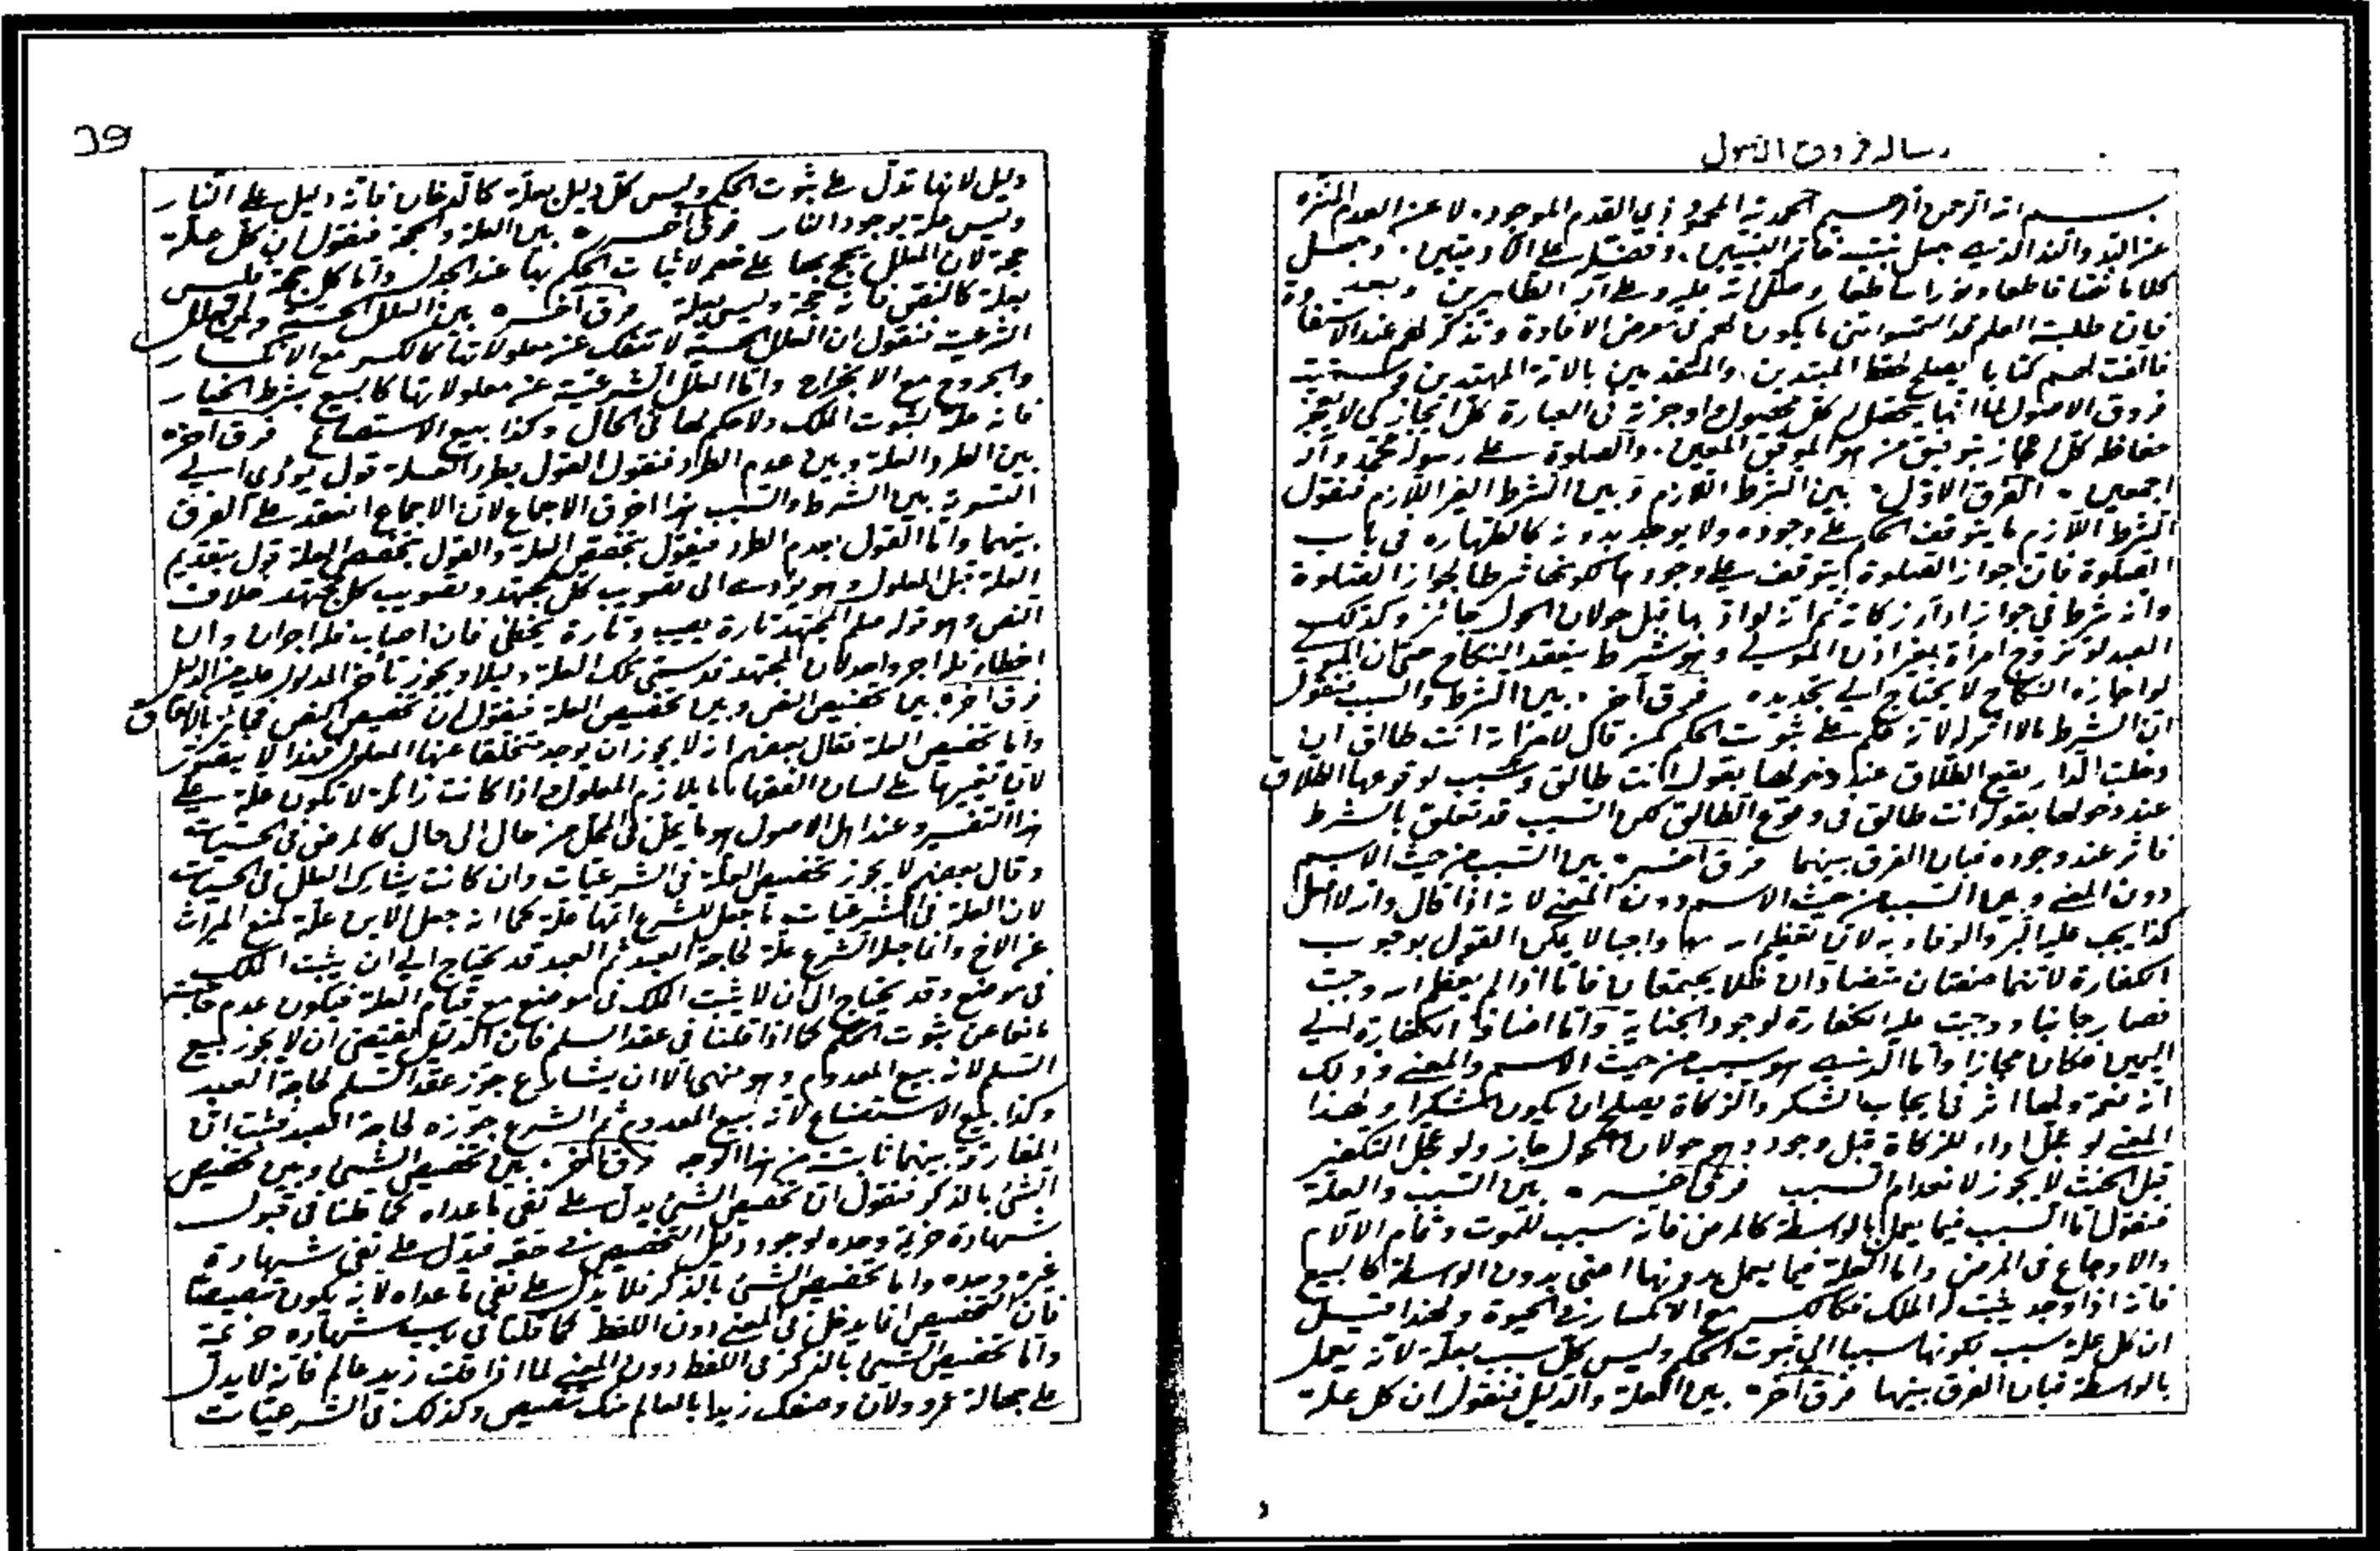 رساله فروق الاصول
بسم الله الرحمن الرحيم الحمد لله المحمود ذي القدم الموجود لا عن العدم المنزه
عن الند والند الذي جعل نبيه خاتم النبيين وفضله على الآدميين وجعل
كلامه نصا قاطعا ونورا ساطعا وصلى الله عليه وعلى آله الطاهرين وبعد
فان طلبة العلم قد التمسوا مني ما يكون لهم في معرض الافادة وتذكرة لهم عند الاستفادة
فالفت لهم كتابا يصلح لحفظ المبتدين والمتقدمين بالانة المهتدين وسميته
فروق الاصول لما انها كل محصول واوجزته في العبارة كل ايجاز كي لا يعجز
حفاظه كل بتوفيق من هو الموفق المعين والصلوة على رسوله محمد وآله
اجمعين الفرق الاول بين الشرط اللازم وبين الشرط الغير اللازم فنقول
الشرط اللازم ما يتوقف الحكم على وجوده ولا يوجد بدونه كالطهارة في باب
الصلوة فان جواز الصلوة يتوقف على وجودها لكونها شرطا لجواز الصلوة
وانه شرط في جواز اداء زكاته ثم انه لو اداها قبل حولان الحول جائز وكذلك
العبد لو تزوج امرأة بغير اذن المولى وهو شرط ينعقد النكاح حتى ان المولى
لو اجازه النكاح لا يحتاج الى تجديده فرق آخر بين الشرط والسبب فنقول
ان الشرط ما لا اثر له لانه على ثبوت الحكم كمن قال لامرأته انت طالق ان
دخلت الدار يقع الطلاق عند دخولها بقوله انت طالق وسبب لوقوعها الطلاق
عند دخولها بقوله انت طالق في وقوع الطالق لكن السبب قد تعلق بالشرط
فاثر عند وجوده فبان الفرق بينهما فرق آخر بين السبب من حيث الاسم
دون المعنى وبين السبب من حيث الاسم دون المعنى لانه اذا قال والله لا افعل
كذا يجب عليه البر والوفاء به لان تعظيم الله واجبا لا يمكن القول بوجوب
الكفارة لانهما صفتان متضادان فلا يجتمعان فاما اذا لم يعظم الله وحنث
فصار جانيا ووجبت عليه الكفارة لوجود الجناية وانما اضاف الكفارة الى
اليمين فكان مجازا واما الذي هو سبب من حيث الاسم والمعنى وذلك
انه نعمة ولها اثر في ايجاب الشكر والزكاة يصلح ان يكون شكرا ولهذا
المعنى لو عجل اداء الزكاة قبل وجوده وهو حولان الحول جاز ولو عجل التكفير
قبل الحنث لا يجوز لانعدام السبب فرق آخر بين السبب والعلة
فنقول اما السبب فيما يعمل بالواسطة كالمرض فانه سبب للموت وقيام الالام
والاوجاع في المرض واما العلة فيما يعمل بدونها اعني بدون الواسطة كالبيع
فانه اذا وجد يثبت الملك فكالكسر مع الانكسار ولهذا قيل
ان كل علة سبب لكونها سببا الى ثبوت الحكم وليس كل سبب بعلة لانه يعمل
بالواسطة فبان الفرق بينهما فرق آخر بين العلة والدليل فنقول ان كل علة
دليل لانها تدل على ثبوت الحكم وليس كل دليل بعلة كالدخان فانه دليل على النار
وليس علة بوجود النار فرق آخر بين العلة والحجة فنقول ان كل علة
حجة لان المعلل يحتج بها على خصمه لاثبات الحكم بها عند الجدل واما كل حجة فليس
بعلة كالنص فانه حجة وليس بعلة فرق آخر بين العلل الحسية وبين العلل
الشرعية فنقول ان العلل الحسية لا تنفك عن معلولاتها كالكسر مع الانكسار
والجروح مع الانجراح واما العلل الشرعية عن معلولاتها كالبيع بشرط الخيار
فانه علة لثبوت الملك ولا حكم لها في الحال وكذا بيع الاستصناع فرق آخر
بين الطرد والعلة وبين عدم الطرد فنقول القول بطرد العلة قول يؤدي الى
التسوية بين الشرط والسبب هذا خرق الاجماع لان الاجماع انعقد على الفرق
بينهما واما القول بعدم الطرد فيقول بتخصيص العلة والقول بتخصيص العلة قول بتقديم
العلة قبل المعلول وهو يؤدي الى تصويب كل مجتهد وتصويب كل مجتهد خلاف
النص وهو قوله صلعم المجتهد تارة يصيب وتارة يخطي فان اصاب فله اجران وان
اخطاء فله اجر واحد لان المجتهد قد سمى تلك العلة دليلا ويجوز تأخر المدلول عليه من الدليل
فرق آخر بين تخصيص النص وبين تخصيص العلة فنقول ان تخصيص النص فجائز بالاتفاق
واما تخصيص العلة فقال بعضهم انه لا يجوز ان يوجد متخلفا عنها المعلول فهذا لا يتصور
لان تفسيرها على لسان الفقهاء ما يلازم المعلول واذا كانت زائلة لا تكون علة على
هذا التفسير وعند اهل الاصول هو ما يحل في المحل من حال الى حال كالمرض في الحسيات
وقال بعضهم لا يجوز تخصيص العلة في الشرعيات وان كانت يشارك العلل في الحسيات
لان العلة في الشرعيات ما جعل الشرع انها علة كما انه جعل الابن علة لمنع الميراث
عن الاخ وانما جعلها الشرع علة لحاجة العبد ثم العبد قد يحتاج الى ان يثبت الملك
في موضع وقد يحتاج الى ان لا يثبت الملك في موضع مع قيام العلة فيكون عدم
مانعا عن ثبوت الحكم كما اذا قلنا في عقد السلم فان الدليل يقتضي ان لا يجوز بيع
السلم لانه بيع المعدوم وهو منهي الا ان الشارع جوز عقد السلم لحاجة العبد
وكذا بيع الاستصناع لانه بيع المعدوم ثم الشرع جوزه لحاجة العبد فثبت ان
المفارقة بينهما ثابتة من هذا الوجه فرق آخر بين تخصيص الشيء وبين تخصيص
الشيء بالذكر فنقول ان تخصيص الشيء يدل على نفي ما عداه كما قلنا في قبول
شهادة خزيمة وحده لوجود دليل التخصيص في حقه فيدل على نفي شهادة
غيره وحده واما تخصيص الشيء بالذكر فلا يدل على نفي ما عداه لانه يكون تنصيصا
فان التخصيص انما يدخل في المعنى دون اللفظ كما قلنا في باب شهادة خزيمة
واما تخصيص الشيء بالذكر في اللفظ دون المعنى كما اذا قلت زيد عالم فانه لا يدل
على جهالة عمرو ولان وصفك زيدا بالعالم منك تنصيص وكذلك في الشرعيات